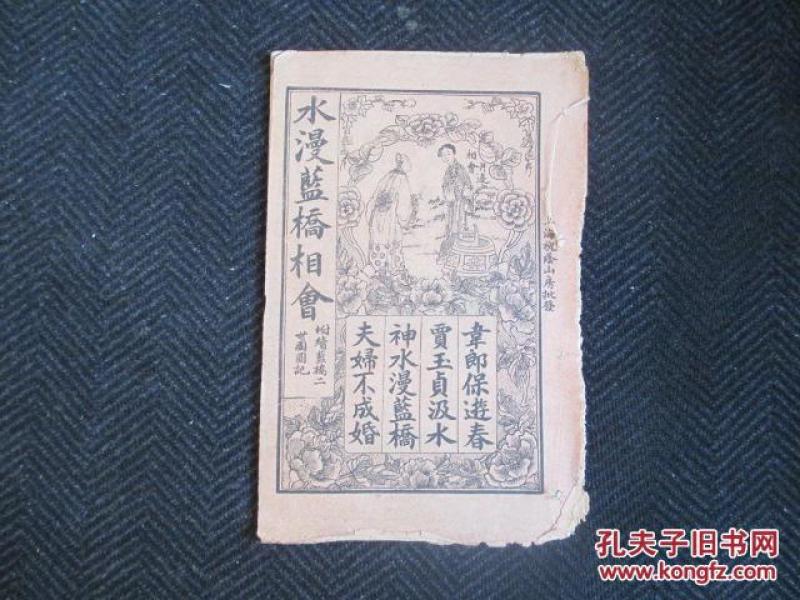 水漫藍橋相會
附續藍橋二
世團圓記
相會
韋郎保遊春
賈玉貞汲水
神水漫藍橋
夫婦不成婚
山房批發
孔夫子旧书网
www.kongfz.com